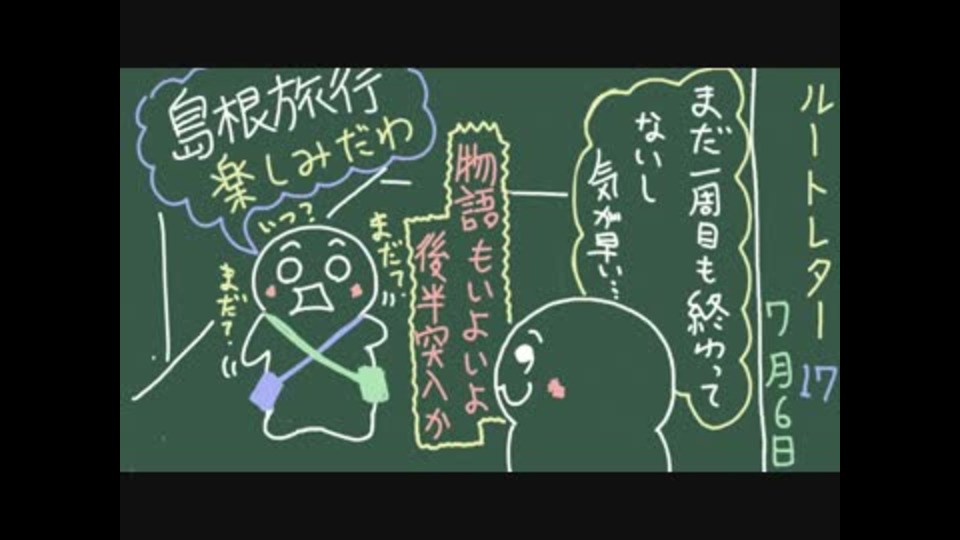 ルートレター17
7月6日
まだ一周目も終わって
ないし
気が早い…
物語もいよいよ
後半突入か
島根旅行
楽しみだわ
いつ?
まだ?
まだ?